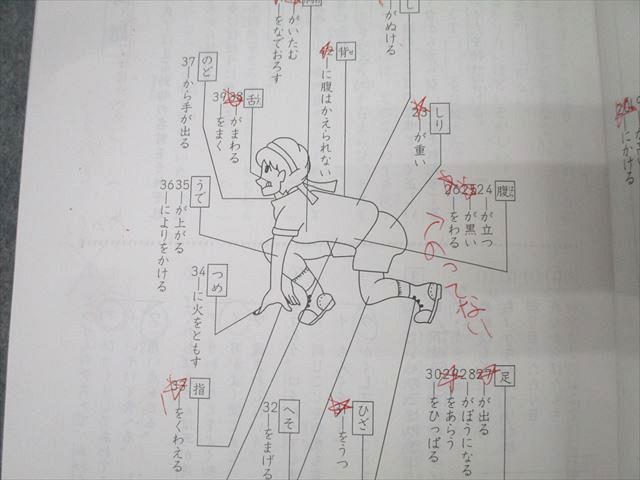 しり
―が重い
腹
24―が立つ
―が黒い
―をわる
のってない
足
―が出る
28―がぼうになる
―をあらう
30―をひっぱる
がぬける
背
―に腹はかえられない
ひざ
―をうつ
がいたむ
をなでおろす
舌
―がまわる
39―をまく
へそ
32―をまげる
のど
37―から手が出る
うで
35―が上がる
36―によりをかける
つめ
34―に火をともす
指
―をくわえる
にかける